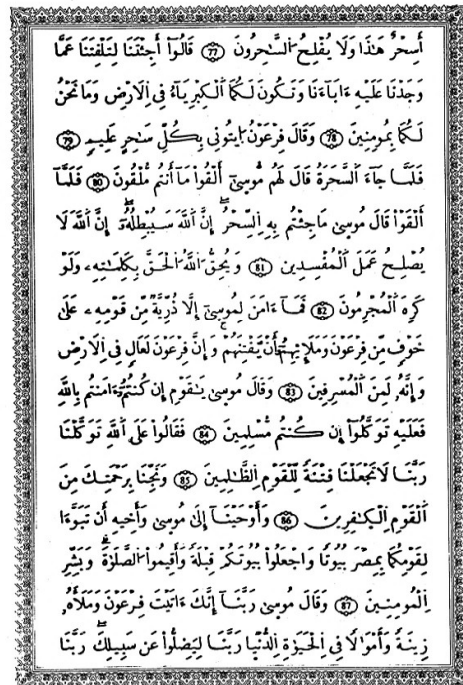 أَسِحْرٌ هَٰذَا وَلَا يُفْلِحُ اُ۬لسَّٰحِرُونَ 77 قَالُوٓاْ أَجِئْتَنَا لِتَلْفِتَنَا عَمَّا
وَجَدْنَا عَلَيْهِ ءَابَآءَنَا وَتَكُونَ لَكُمَا اَ۬لْكِبْرِيَآءُ فِے اِ۬لَارْضِ وَمَا نَحْنُ
لَكُمَا بِمُومِنِينَ 78 وَقَالَ فِرْعَوْنُ اُ۪يتُونِے بِكُلِّ سَٰحِرٍ عَلِيمٍ 79
فَلَمَّا جَآءَ اَ۬لسَّحَرَةُ قَالَ لَهُم مُّوسَىٰٓ أَلْقُواْ مَآ أَنتُم مُّلْقُونَ 80 فَلَمَّآ
أَلْقَوْاْ قَالَ مُوسَىٰ مَا جِئْتُم بِهِ اِ۬لسِّحْرُ إِنَّ اَ۬للَّهَ سَيُبْطِلُهُۥٓ إِنَّ اَ۬للَّهَ لَا
يُصْلِحُ عَمَلَ اَ۬لْمُفْسِدِينَ 81 وَيُحِقُّ اُ۬للَّهُ اُ۬لْحَقَّ بِكَلِمَٰتِهِۦ وَلَوْ
كَرِهَ اَ۬لْمُجْرِمُونَ 82 فَمَآ ءَامَنَ لِمُوسَىٰٓ إِلَّا ذُرِّيَّةٌ مِّن قَوْمِهِۦ عَلَىٰ
خَوْفٍ مِّن فِرْعَوْنَ وَمَلَإِيْهِمُۥٓ أَنْ يَّفْتِنَهُمْ وَإِنَّ فِرْعَوْنَ لَعَالٍ فِے اِ۬لَارْضِ
وَإِنَّهُۥ لَمِنَ اَ۬لْمُسْرِفِينَ 83 وَقَالَ مُوسَىٰ يَٰقَوْمِ إِن كُنتُمُۥٓ ءَامَنتُم بِاللَّهِ
فَعَلَيْهِ تَوَكَّلُوٓاْ إِن كُنتُم مُّسْلِمِينَ 84 فَقَالُواْ عَلَى اَ۬للَّهِ تَوَكَّلْنَا
رَبَّنَا لَا تَجْعَلْنَا فِتْنَةً لِّلْقَوْمِ اِ۬لظَّٰلِمِينَ 85 وَنَجِّنَا بِرَحْمَتِكَ مِنَ
اَ۬لْقَوْمِ اِ۬لْكَٰفِرِينَ 86 وَأَوْحَيْنَآ إِلَىٰ مُوسَىٰ وَأَخِيهِ أَن تَبَوَّءَا
لِقَوْمِكُمَا بِمِصْرَ بُيُوتاً وَاجْعَلُواْ بُيُوتَكُمْ قِبْلَةً وَأَقِيمُواْ اُ۬لصَّلَوٰةَ وَبَشِّرِ
اِ۬لْمُومِنِينَ 87 وَقَالَ مُوسَىٰ رَبَّنَآ إِنَّكَ ءَاتَيْتَ فِرْعَوْنَ وَمَلَأَهُۥ
زِينَةً وَأَمْوَٰلًا فِے اِ۬لْحَيَوٰةِ اِ۬لدُّنْيَا رَبَّنَا لِيَضِلُّواْ عَن سَبِيلِكَ رَبَّنَا